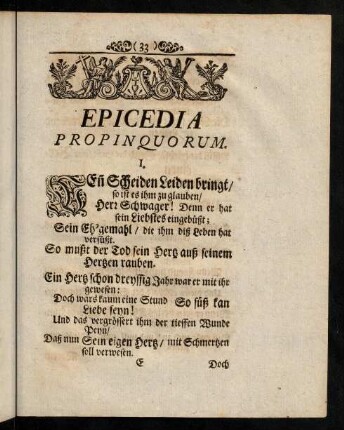 ( 33 )
EPICEDIA
PROPINQUORUM.
I.
WEñ Scheiden Leiden bringt/
so ist es ihm zu glauben/
Herr Schwager! Denn er hat
sein Liebstes eingebüßt;
Sein Eh'gemahl/ die ihm diß Leben hat
versüßt.
So mußt der Tod sein Hertz auß seinem
Hertzen rauben.
Ein Hertz schon dreyssig Jahr war er mit ihr
gewesen:
Doch wärs kaum eine Stund So süß kan
Liebe seyn!
Und das vergrössert ihm der tieffen Wunde
Peyn/
Daß nun Sein eigen Hertz/ mit Schmertzen
soll verwesen.
E Doch